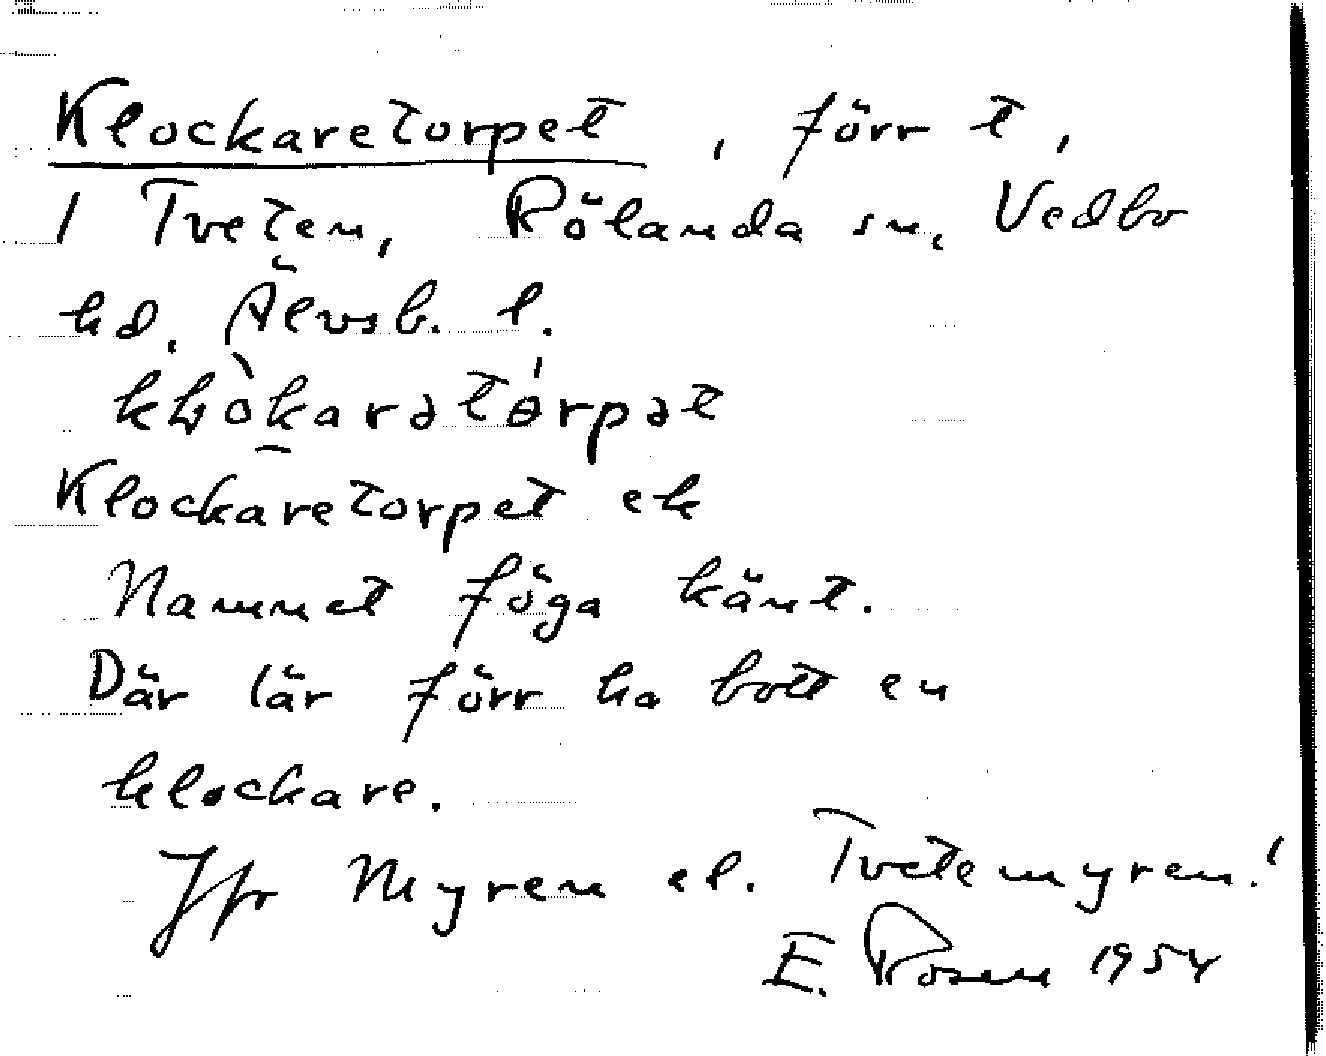 Klockaretorpet, förr t,
1 Tveten, Rölanda sn, Vedbo
hd. Älvsb. l.
Klockaretorpet ek
Namnet föga känt.
Där lär förr ha bott en
klockare.
Jfr Myren el. Tvetemyren!
E. Rosen 1954